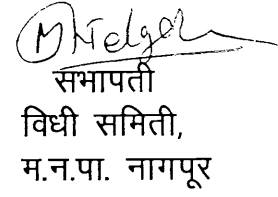 सभापती
विधी समिती,
म.न.पा. नागपूर